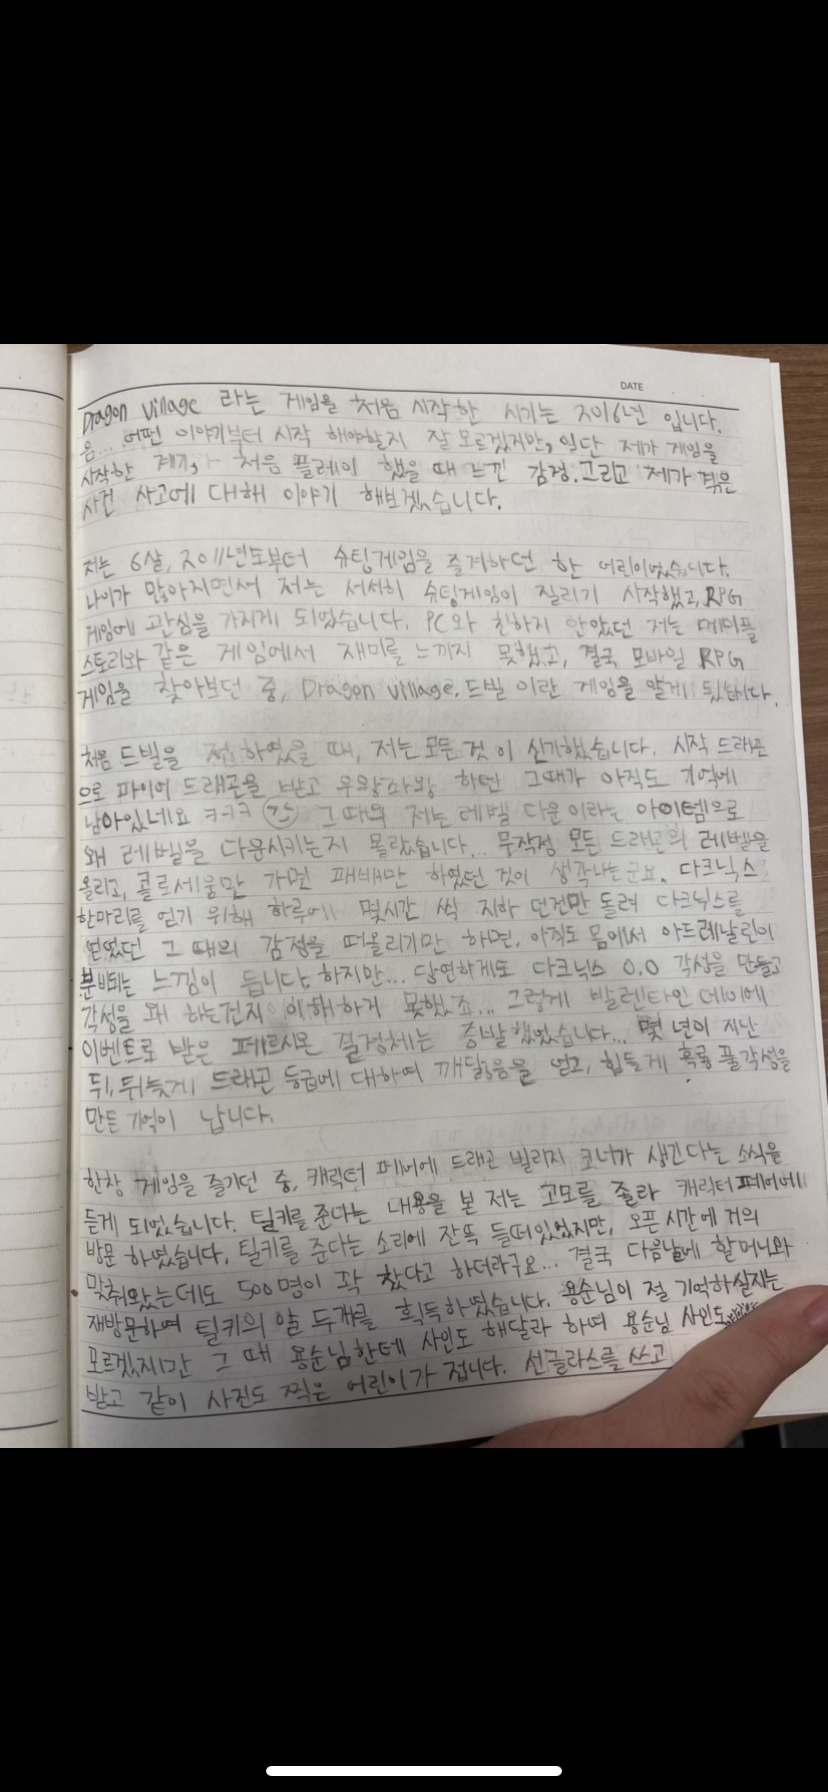 DATE
Dragon Village 라는 게임을 처음 시작한 시기는 2016년 입니다.
음... 어떤 이야기부터 시작 해야할지 잘 모르겠지만, 일단 제가 게임을
시작한 계기, 처음 플레이 했을 때 느낀 감정. 그리고 제가 겪은
사건 사고에 대해 이야기 해보겠습니다.
저는 6살, 2011년도부터 슈팅게임을 즐겨하던 한 어린이였습니다.
나이가 많아지면서 저는 서서히 슈팅게임이 질리기 시작했고, RPG
게임에 관심을 가지게 되었습니다. PC와 친하지 않았던 저는 메이플
스토리와 같은 게임에서 재미를 느끼지 못했고, 결국 모바일 RPG
게임을 찾아보던 중, Dragon village. 드빌 이란 게임을 알게 됬습니다.
처음 드빌을 접하였을 때, 저는 모든 것이 신기했습니다. 시작 드래곤
으로 파이어 드래곤을 받고 우왕좌왕 하던 그때가 아직도 기억에
남아있네요 ㅋㅋㅋ 그 때의 저는 레벨 다운 이라는 아이템으로
왜 레벨을 다운시키는지 몰랐습니다... 무작정 모든 드래곤의 레벨을
올리고, 콜로세움만 가면 패배만 하였던 것이 생각나는군요. 다크닉스
한마리를 얻기 위해 하루에 몇시간 씩 지하 던전만 돌려 다크닉스를
얻었던 그 때의 감정을 떠올리기만 하면, 아직도 몸에서 아드레날린이
분비되는 느낌이 듭니다. 하지만... 당연하게도 다크닉스 0.0 각성을 만들고
각성을 왜 하는건지 이해하지 못했죠... 그렇게 발렌타인 데이에
이벤트로 받은 페르시온 결정체는 증발했었습니다... 몇 년이 지난
뒤, 뒤늦게 드래곤 등급에 대하여 깨달음을 얻고, 힘들게 흑룡 풀각성을
만든 기억이 납니다.
한창 게임을 즐기던 중, 캐릭터 페어에 드래곤 빌리지 코너가 생긴다는 소식을
듣게 되었습니다. 틸키를 준다는 내용을 본 저는 고모를 졸라 캐릭터 페어에
방문 하였습니다, 틸키를 준다는 소리에 잔뜩 들떠있었지만, 오픈 시간에 거의
맞춰왔는데도 500명이 꽉 찼다고 하더라구요... 결국 다음날에 할머니와
재방문하여 틸키의 알 두개를 획득하였습니다. 용순님이 절 기억하실지는
모르겠지만 그 때 용순님한테 사인도 해달라 하며 용순님 사인도
받고 같이 사진도 찍은 어린이가 접니다. 선글라스를 쓰고